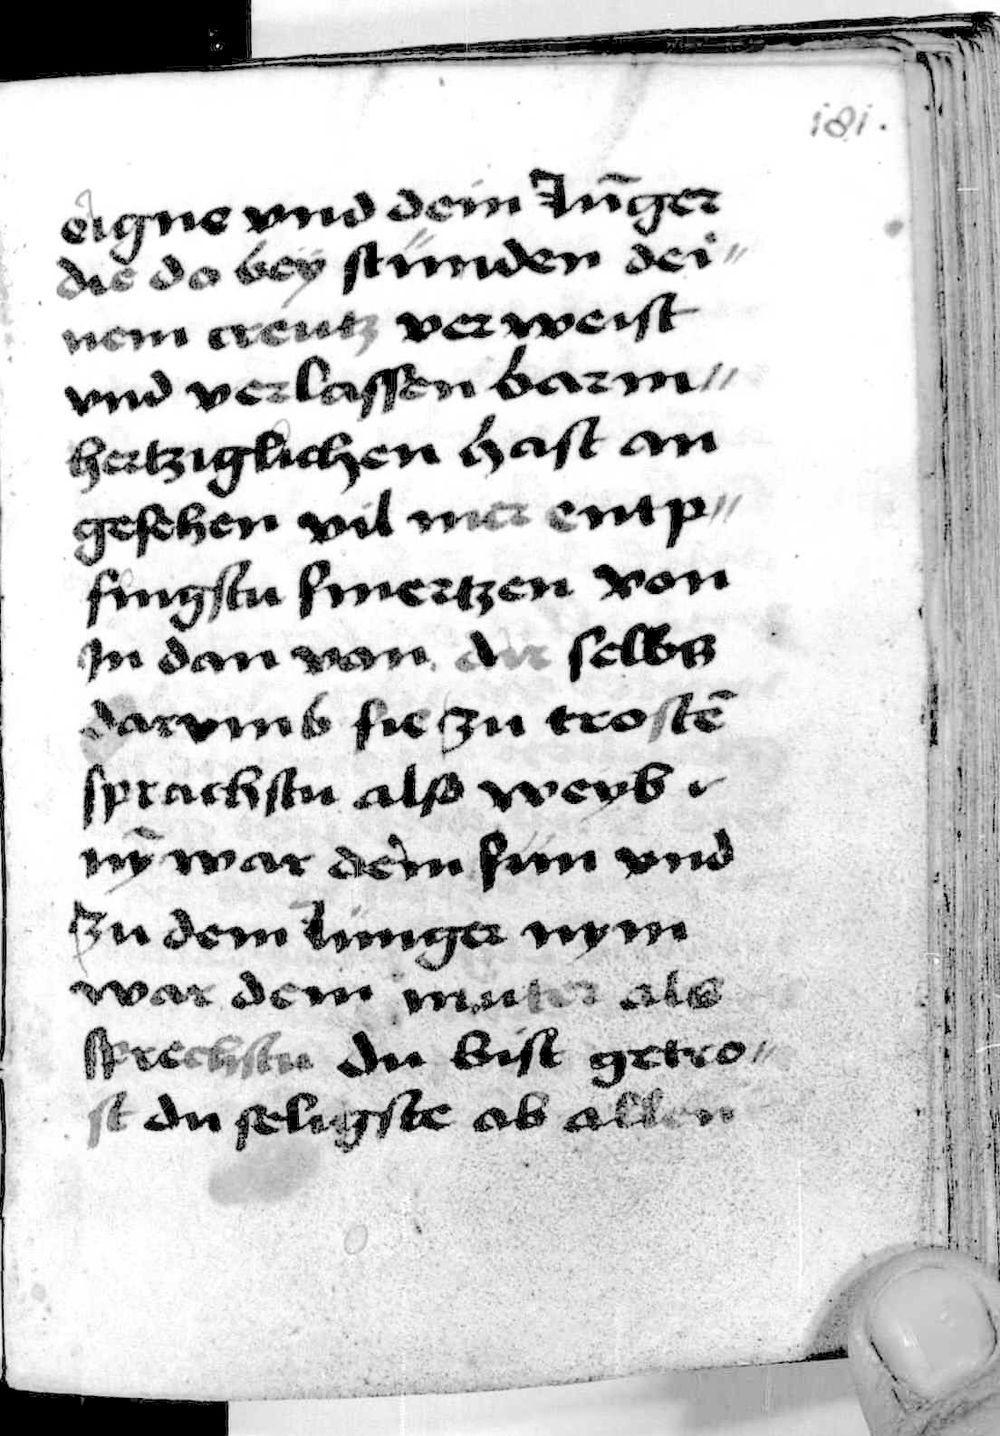 181.
eigne vnd dein Jūnger
die do bey stunden dei〃
nem creutz verweist
vnd verlassen barm〃
hertziglichen hast an
gesehen vil mer entp〃
fingstu smertzen von
In dan von dir selbs
darvmb sie zu trostē
sprachstu also weyb
nȳ war dein sun vnd
zu dem Junger nym
war dein muter als
sprechstu du bist getro〃
st du seligste ob allen